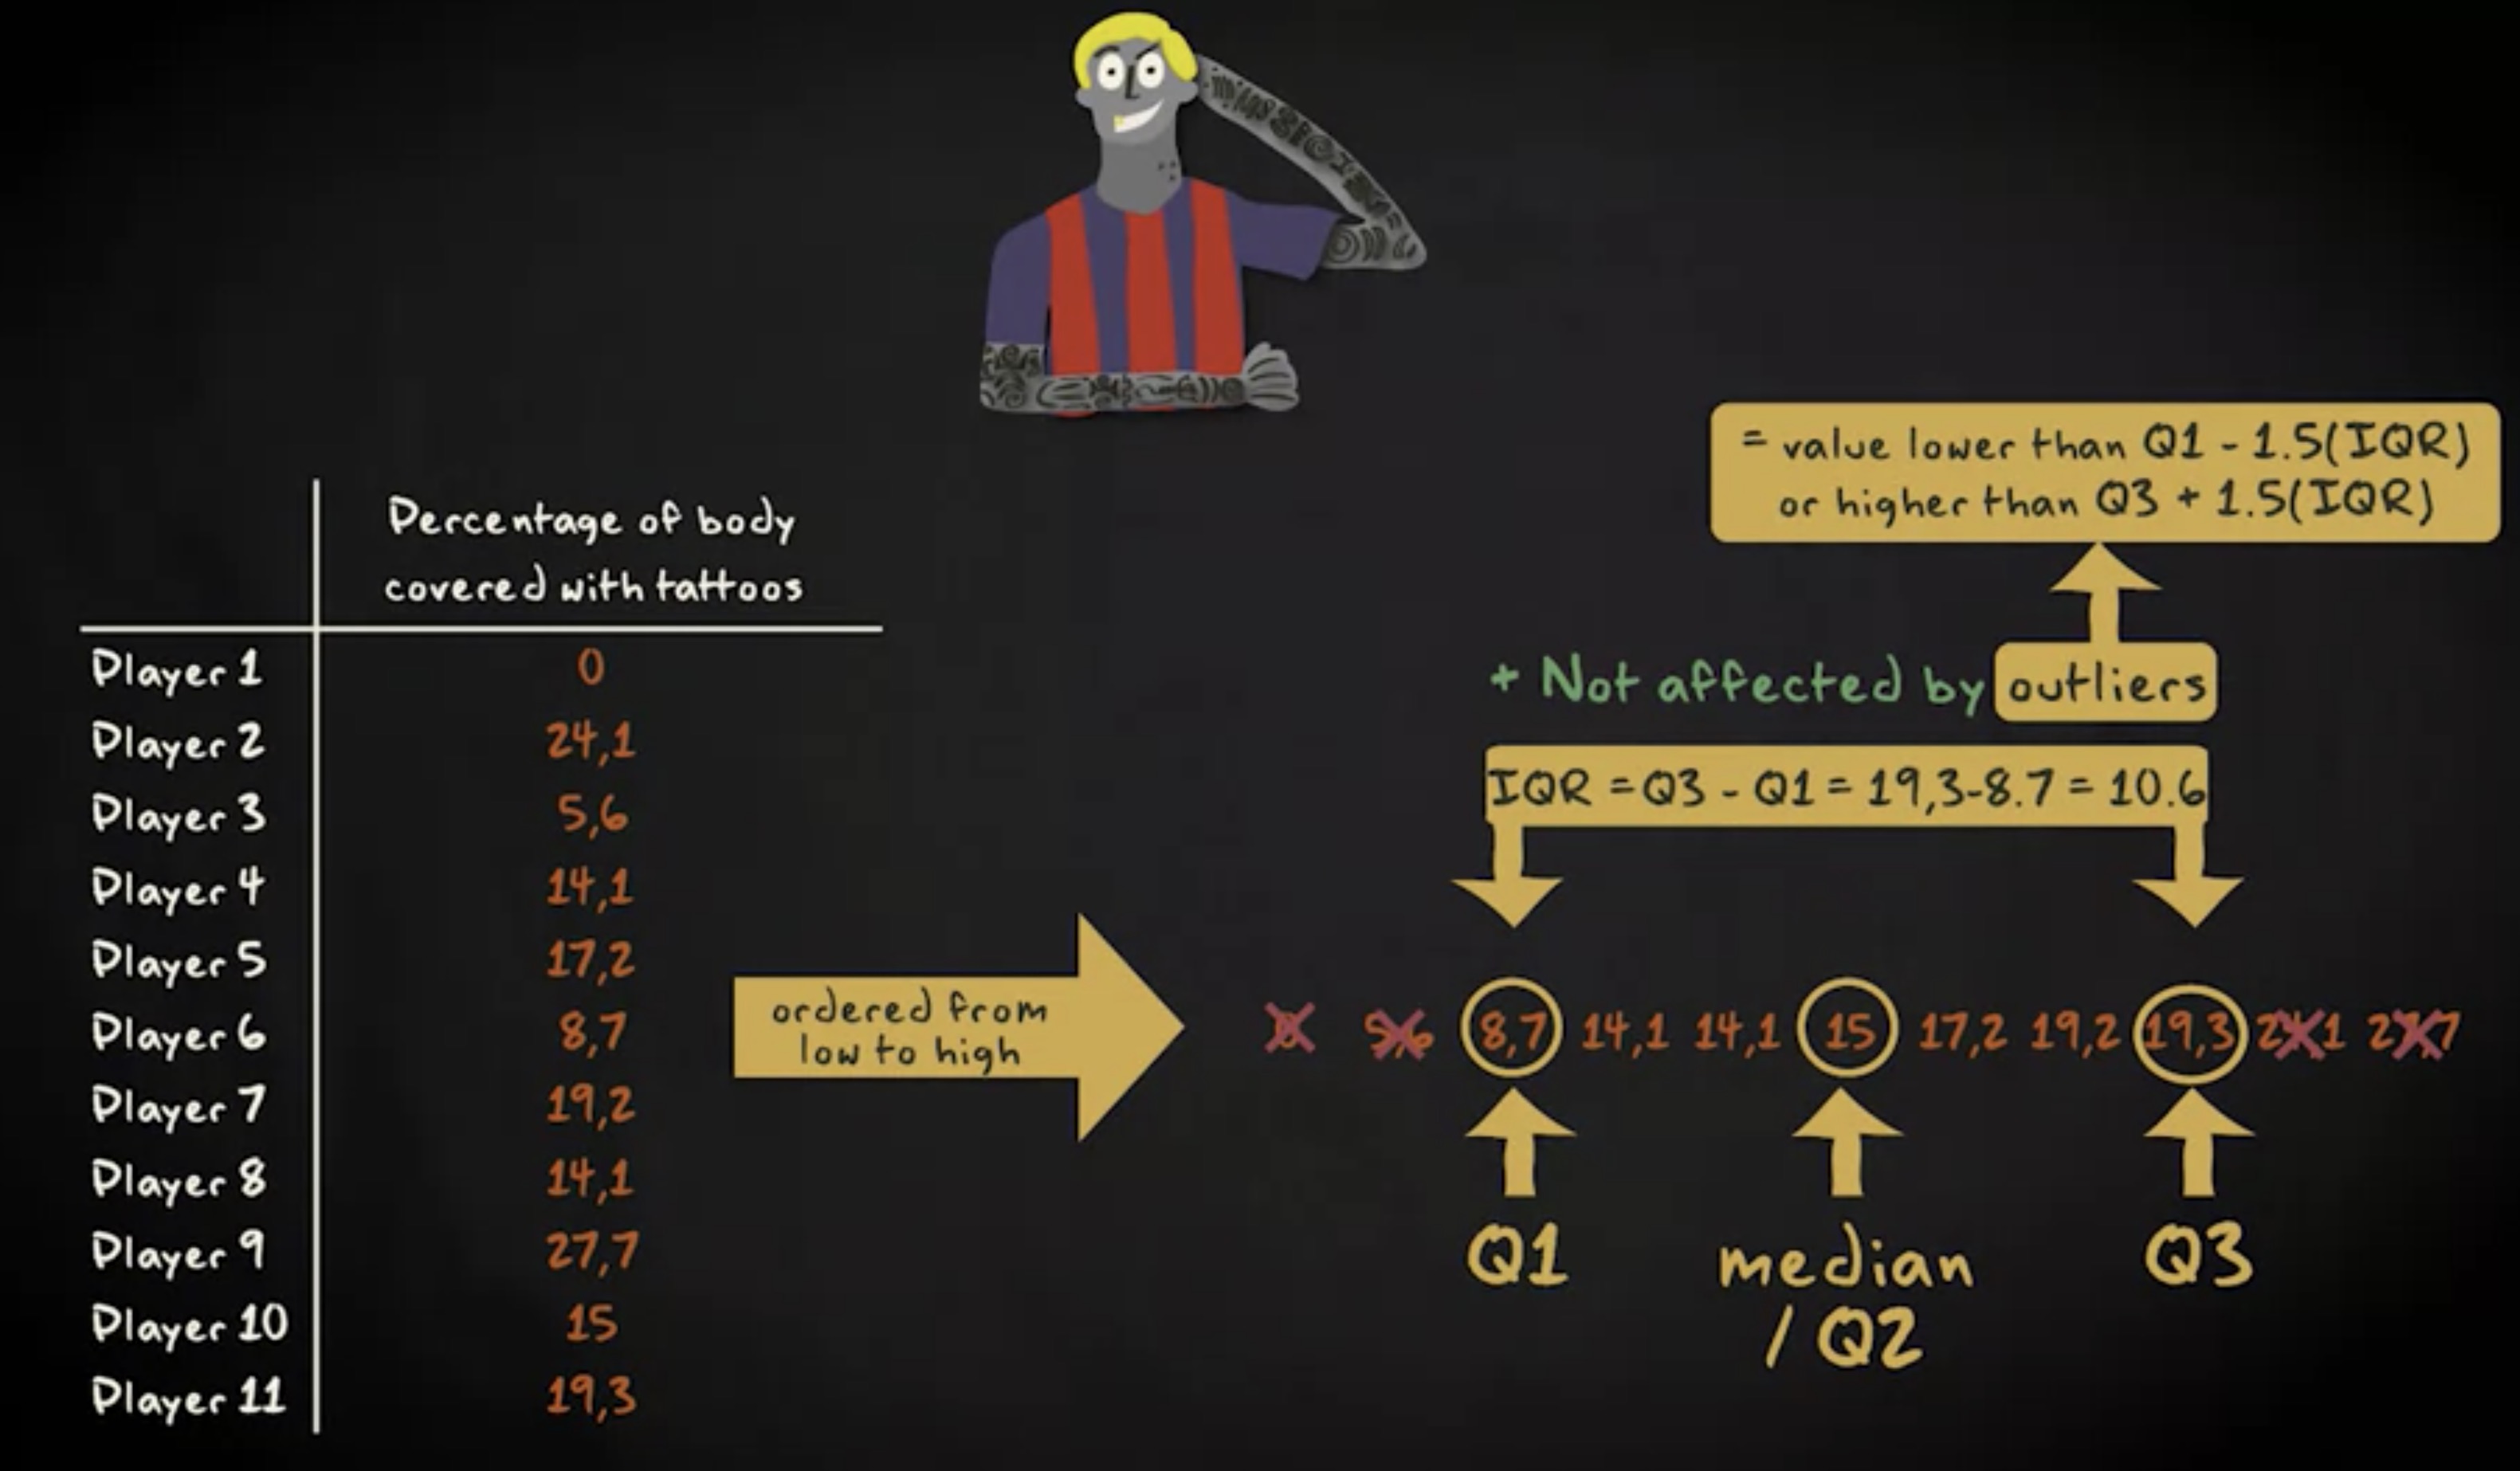 Percentage of body
covered with tattoos
Player 1 0
Player 2 24,1
Player 3 5,6
Player 4 14,1
Player 5 17,2
Player 6 8,7
Player 7 19,2
Player 8 14,1
Player 9 27,7
Player 10 15
Player 11 19,3
ordered from
low to high
= value lower than Q1 - 1.5(IQR)
or higher than Q3 + 1.5(IQR)
+ Not affected by outliers
IQR = Q3 - Q1 = 19,3-8.7 = 10.6
0 5,6 8,7 14,1 14,1 15 17,2 19,2 19,3 24,1 27,7
Q1
median
/ Q2
Q3